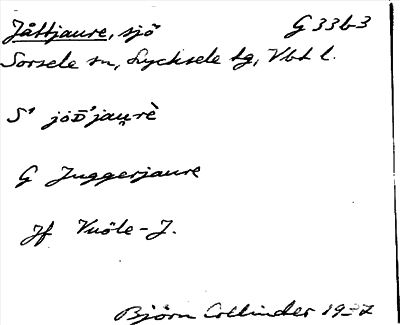 Jåttjaure, sjö G 33b3
Sorsele sn, Lycksele lg, Vbt l.
S' jöD̄'jau̯rè
G Juggerjaure
Jf Vuöle-J.
Björn Collinder 1927